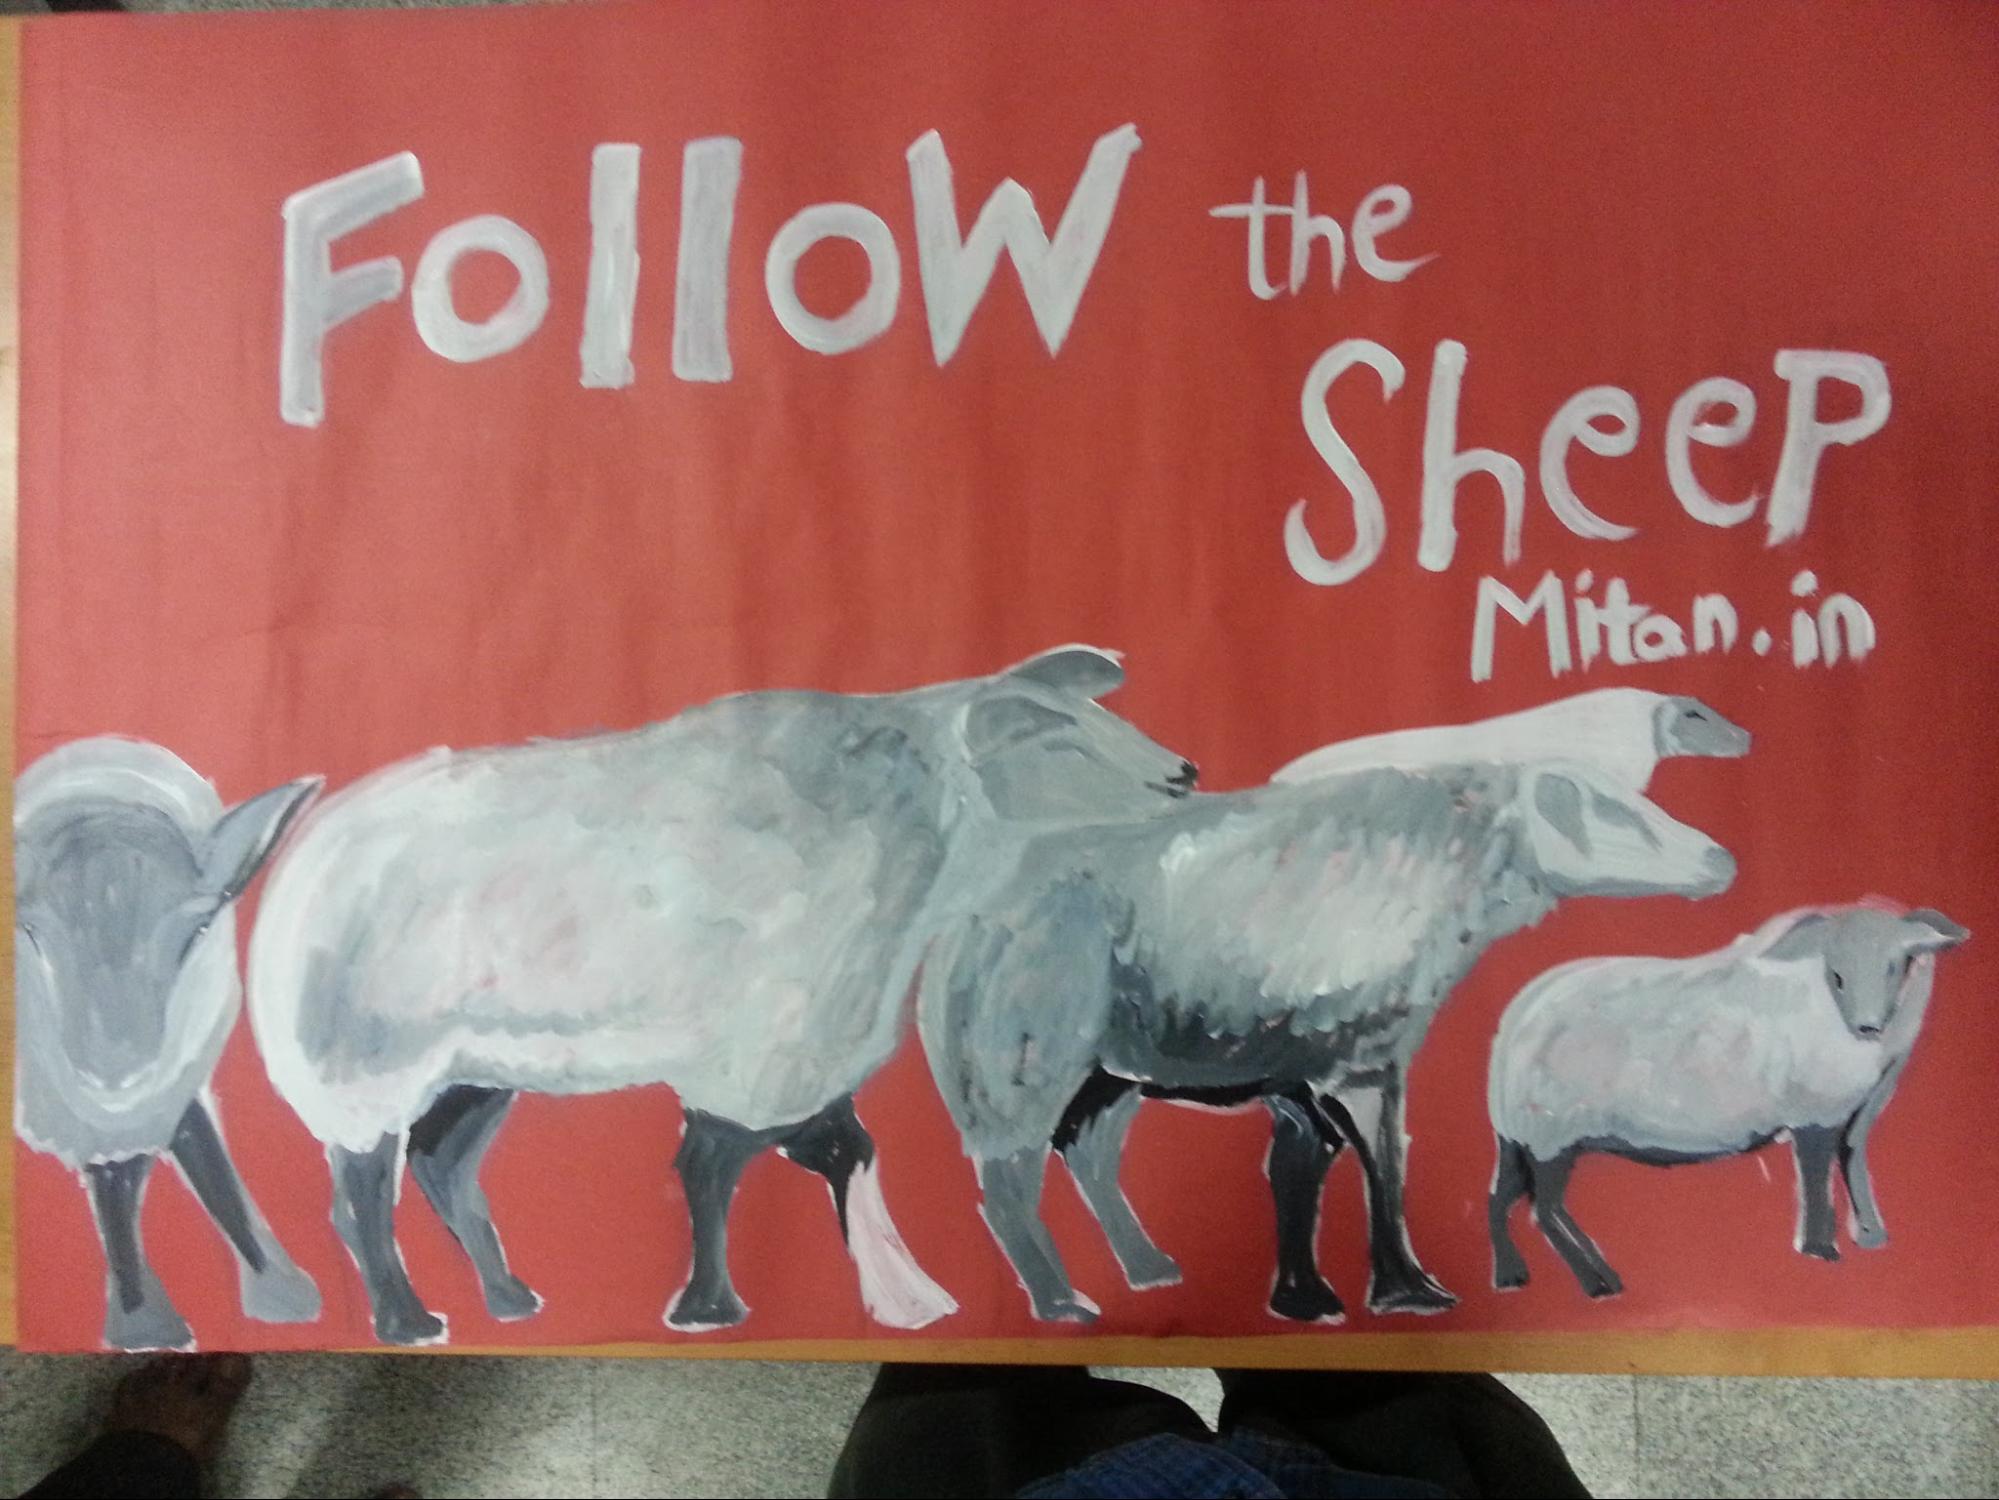 Follow the
Sheep
Mitan.in